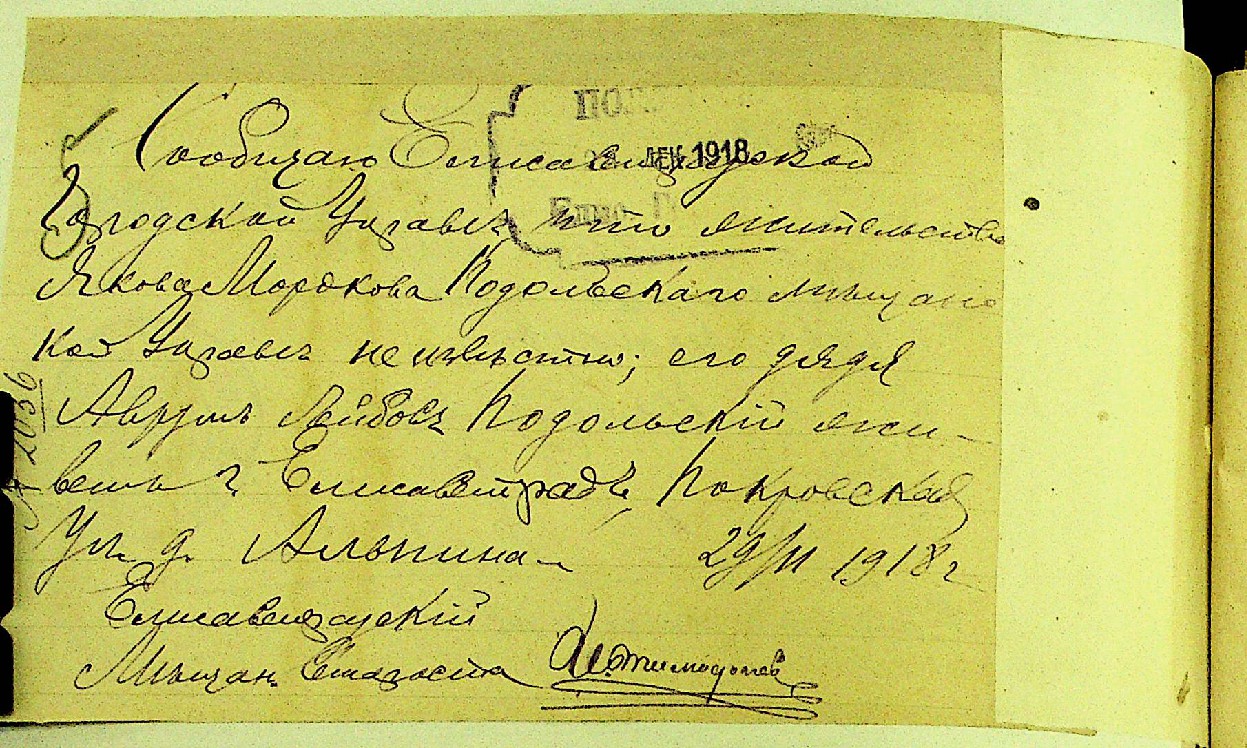 ПОЛ
ДЕК 1918
Сообщаю Елисаветградской
Городской Управѣ что жительство
Якова Мордкова Подольскаго мѣщанс
кой Управѣ неизвѣстно; его дядя
Аврумъ Лейбовъ Подольскій жи-
ветъ г. Елисаветградъ, Покровская
Ул. д. Альпина
29/11 1918 г
Елисаветградскій
Мѣщан. Староста
2036